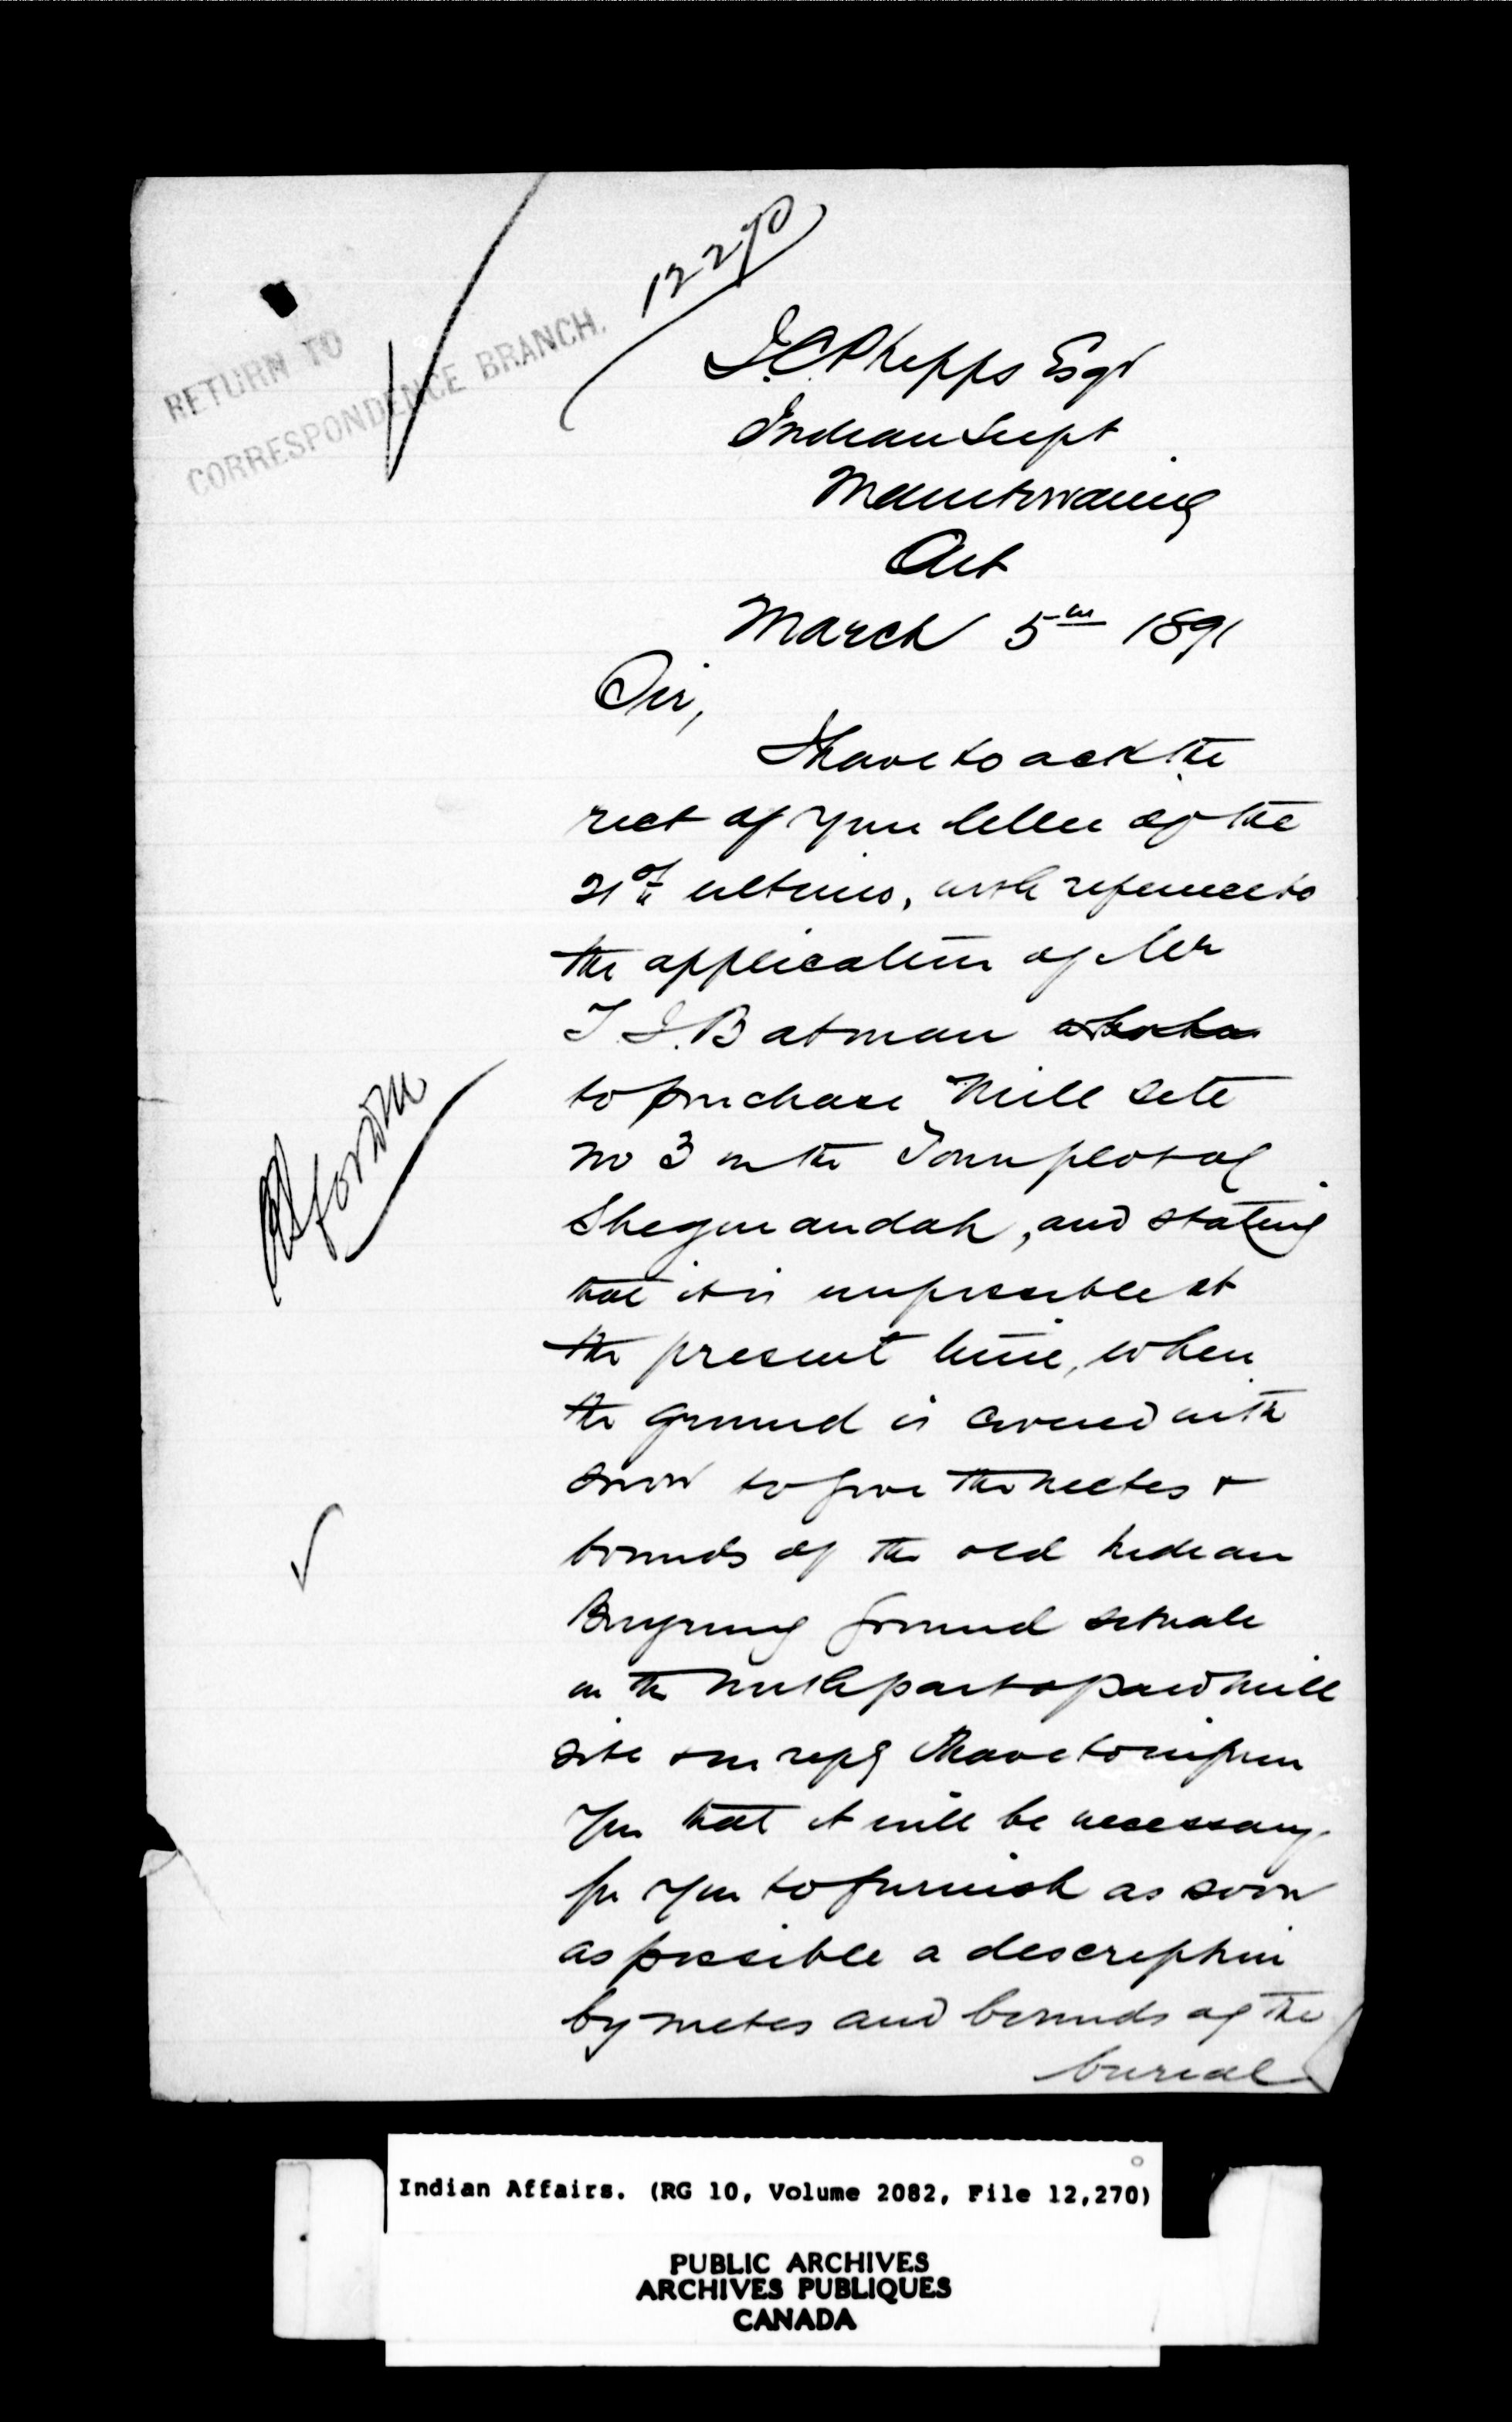 12270
RETURN TO
CORRESPONDENCE BRANCH.
J.C. Phipps Esqr
Indian Supt
Manitowaning
Ont
March 5th 1891
Sir,
I have to ack the
rect of your letter of the
21st ultimo, with reference to
the application of Mr
T. J. Batman
to purchase Mill site
no 3 in the Town plot of
Sheguiandah, and stating
that it is impossible at
the present time, when
the ground is covered with
snow to give the metes &
bounds of the old Indian
Burying ground situate
on the north part of said mill
site & in reply I have to inform
you that it will be necessary
for you to furnish as soon
as possible a description
by metes and bounds of the
burial
Indian Affairs. (RG 10, Volume 2082, File 12,270)
PUBLIC ARCHIVES
ARCHIVES PUBLIQUES
CANADA